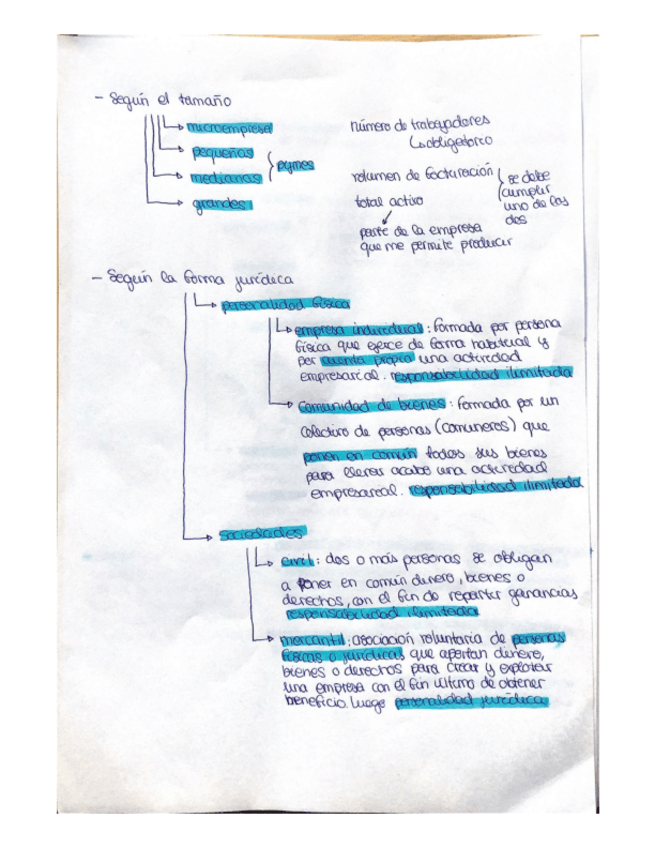 - Según el tamaño
microempresa
pequeñas
medianas
pymes
grandes
número de trabajadores
obligatorio
volumen de facturación
total activo
se debe
cumplir
uno de los
dos
parte de la empresa
que me permite producir
- Según la forma jurídica
personalidad física
empresa individual: formada por persona
física que ejerce de forma habitual y
por cuenta propia una actividad
empresarial. responsabilidad ilimitada
Comunidad de bienes: formada por un
colectivo de personas (comuneros) que
ponen en común todos sus bienes
para llevar acabo una actividad
empresarial. responsabilidad ilimitada
sociedades
civil: dos o más personas se obligan
a poner en común dinero, bienes o
derechos, con el fin de repartir ganancias
responsabilidad ilimitada
mercantil: asociación voluntaria de personas
físicas o jurídicas que aportan dinero,
bienes o derechos para crear y explotar
una empresa con el fin último de obtener
beneficio. luego personalidad jurídica